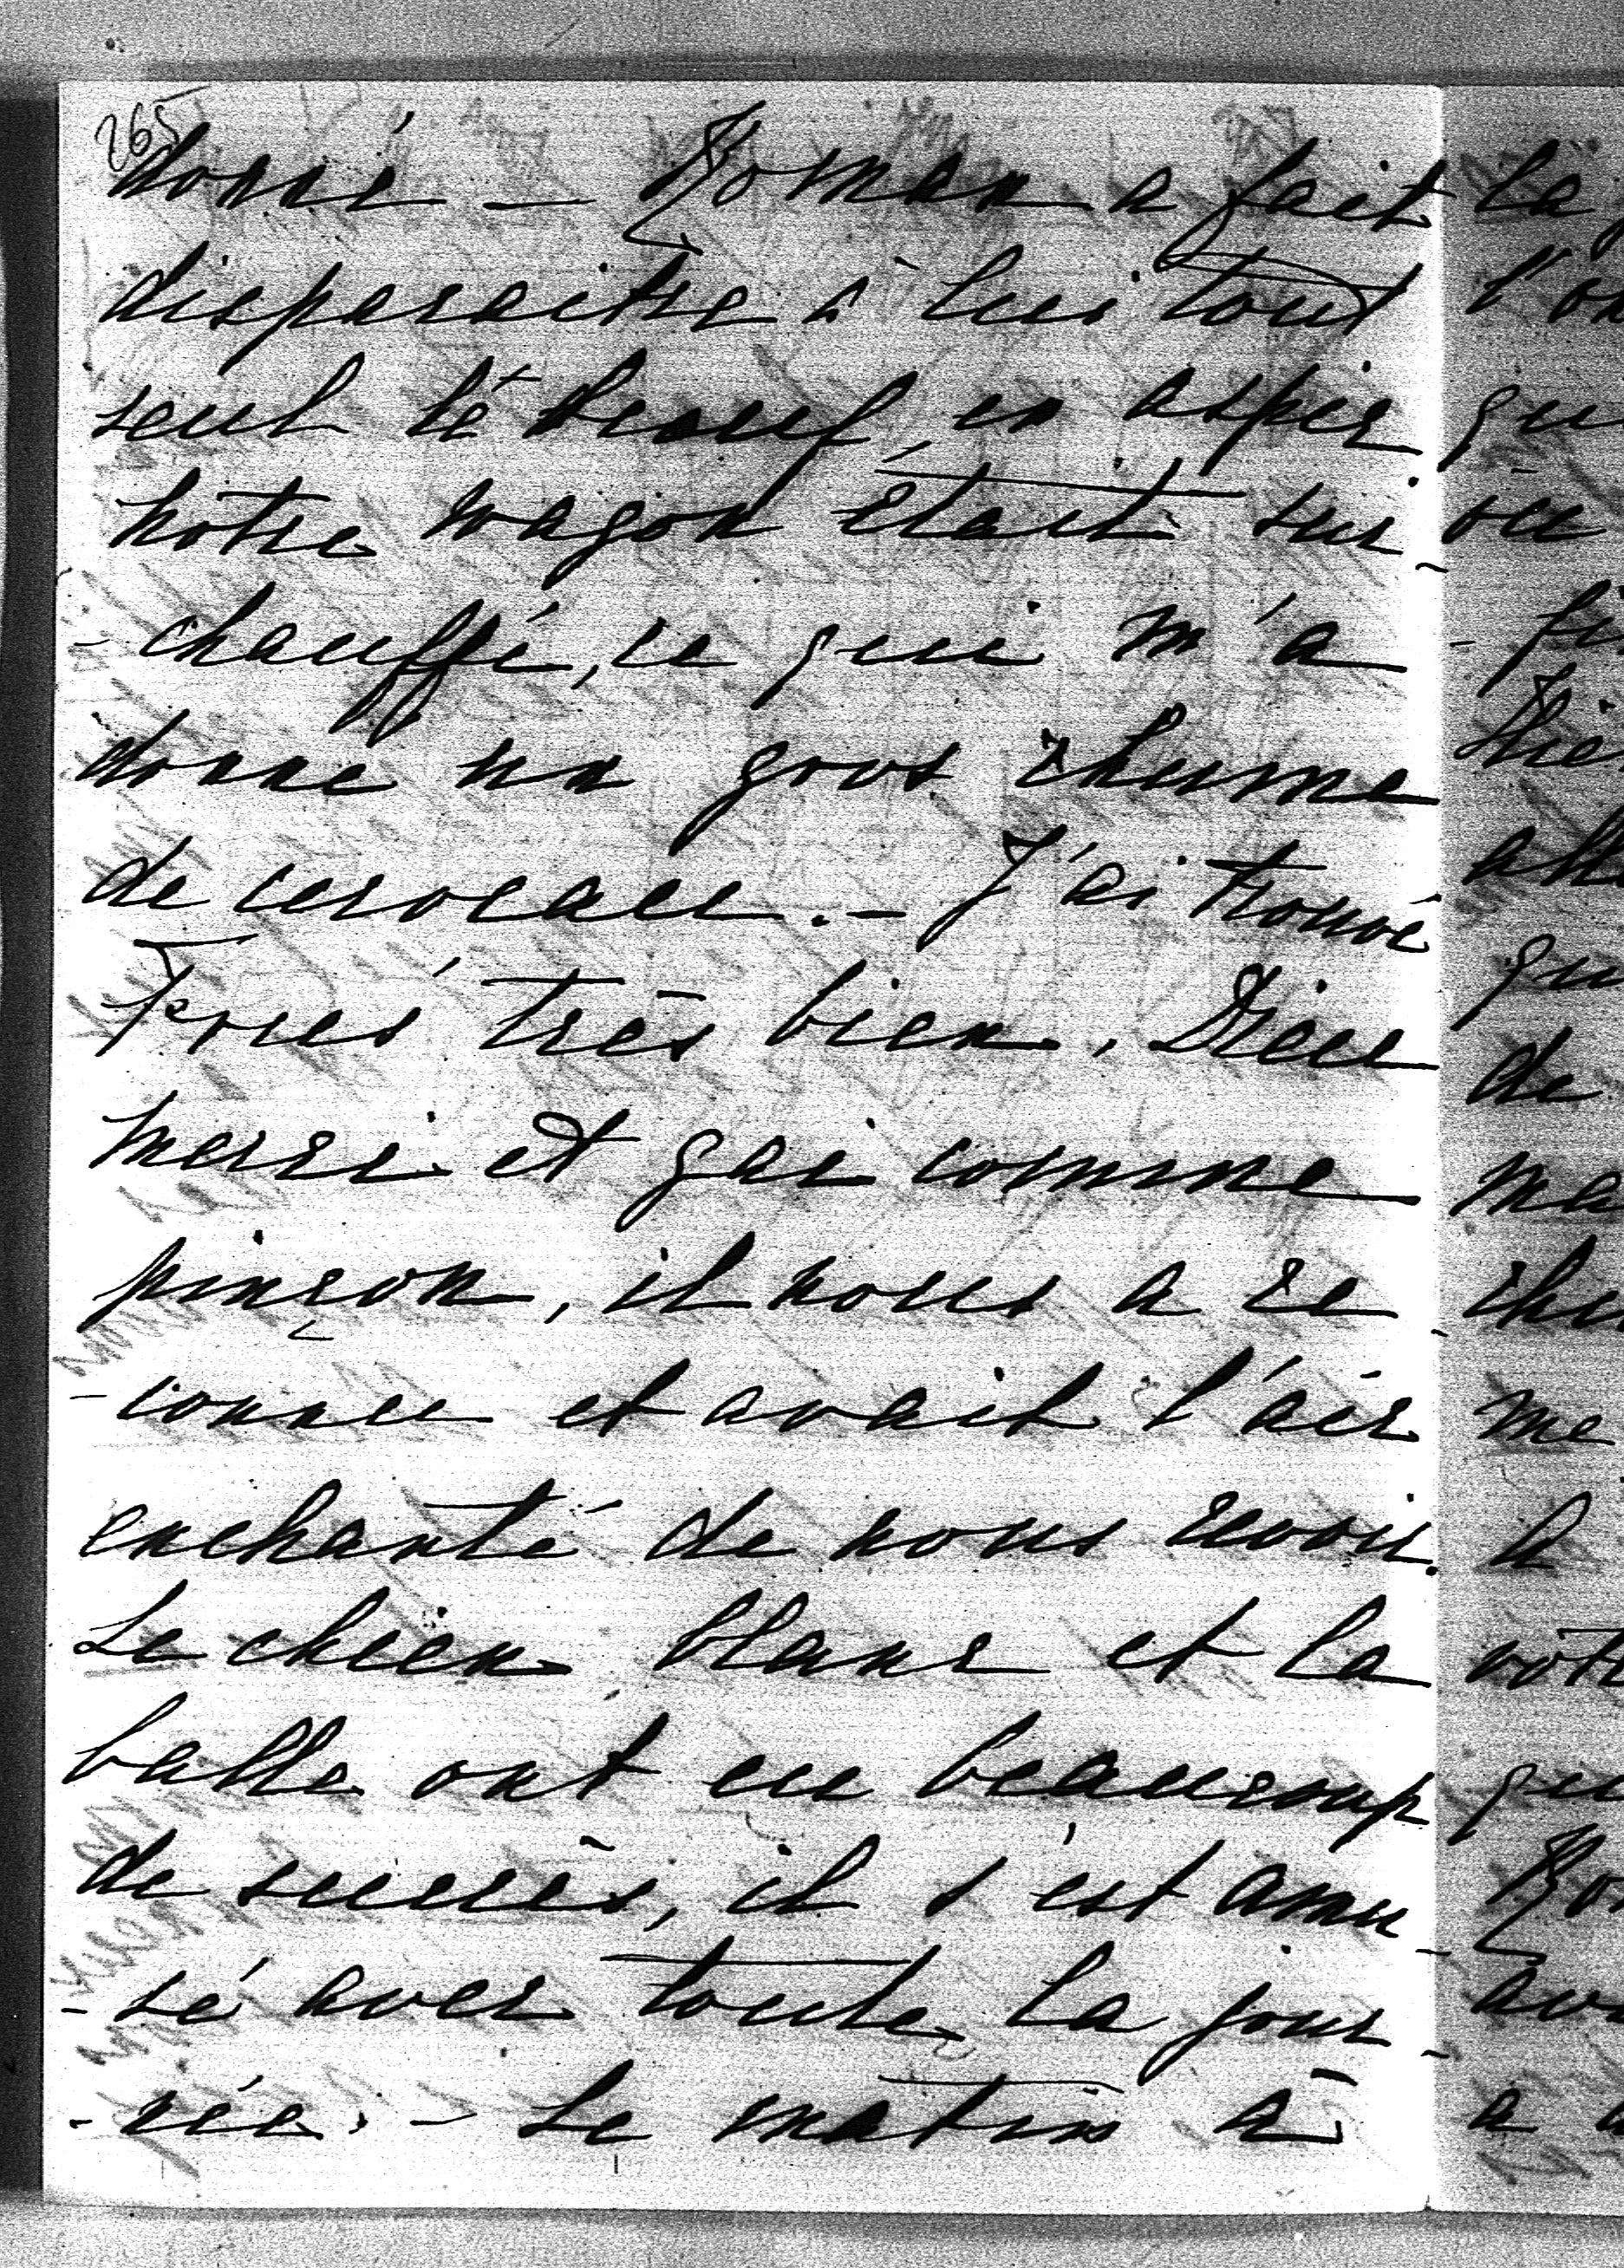 265
donné — Roman a fait
disparaitre à lui tout
seul le boeuf, en
notre wagon était sur-
-chauffé, ce qui m'a
donné un gros rhume
de cerveau. — J'ai trouvé
très bien, Dieu
merci et gai comme
pinçon, il nous a re-
-connu et avait l'air
enchanté de nous revoir.
Le chien blanc et la
balle ont eu beaucoup
de succès, il s'est amu-
-sé avec toute la jour-
-née. — Le matin à